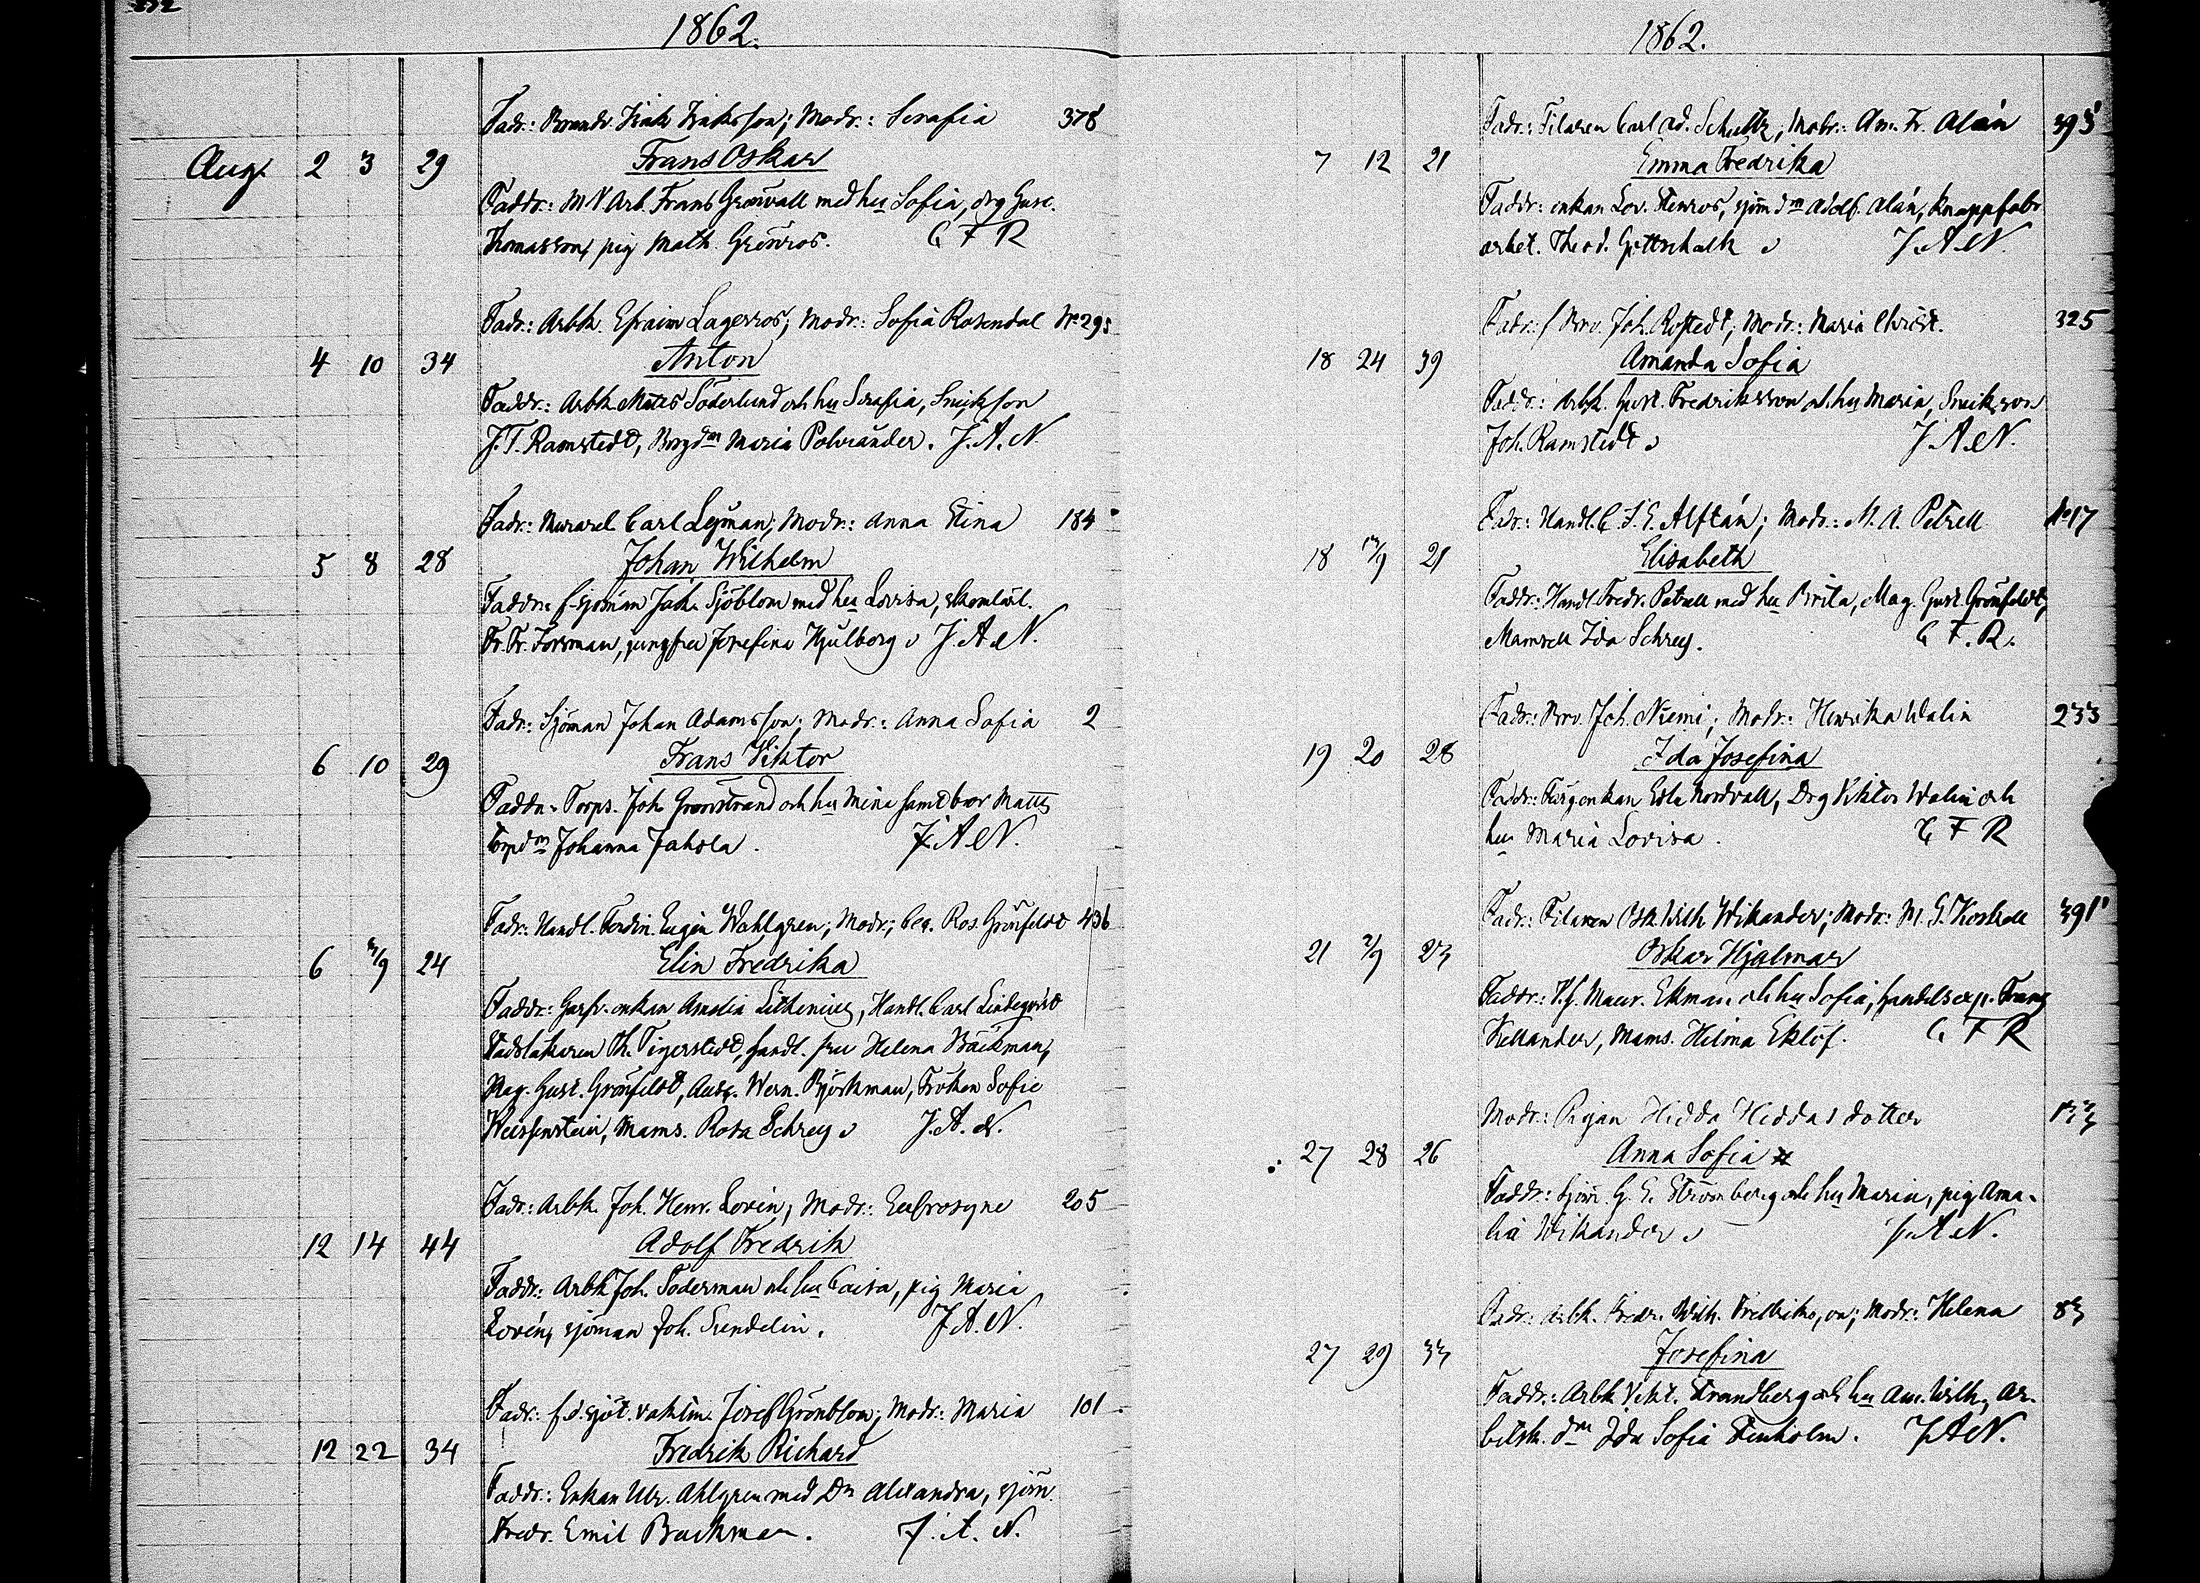 1862.
Fadr.: Brandv. Isak Isaksson; Modr.: Serafia 378
Aug. 2 3 29 Frans Oskar
Faddr.: Arb. Frans Grönvall med hu Sofia, drg Gust.
Thomasson, pig Math. Grönros. C F R
Fadr.: Arbk. Efraim Lagerros; Modr.: Sofia Rosendal No 295
4 10 34 Anton
Faddr.: Arbk. Matts Söderlund och hu Serafia, Snickson
J. T. Ramstedt, Borgdn Maria Polviander. J. A. N.
Fadr.: Murarel Carl Leman; Modr.: Anna Stina 184
5 8 28 Johan Wilhelm
Faddr: f. sjöman Jach. Sjöblom med hu Lovisa, skomlärl.
Fr. Fr. Forsman, jungfru Josefina Hjulberg J. A. N.
Fadr.: Sjöman Johan Adamsson; Modr.: Anna Sofia 2
6 10 29 Frans Viktor
Faddr. Torps. Joh. Grönstrand och hu Mina samt bror Matts
torpdn Johanna Jahola. J. A. N.
Fadr.: Handl. Ferdin. Eugen Wahlgren; Modr.; Ros. Grönfeldt 436
6 3/9 24 Elin Fredrika
Faddr.: enkan Amalia Lithenius, Handl. Carl Lindeqvist
Stadsläkaren Th. Tigerstedt, handl. fru Helena Bäckman,
Mag. Gust. Grönfeldt, Ausc. Wern. Björkman, Fröken Sofie
Weissenstein, Mams. Rosa Schrey J. A. N.
Fadr.: Arbk. Joh. Henr. Lovén; Modr.: Eufrosyne 205
12 14 44 Adolf Fredrik
Faddr.: Arbk Joh. Söderman och hu Caisa, pig Maria
Lovén, sjöman Joh. Sundelin. J. A. N.
Fadr.: f.d. sjöt. vaktm. Josef Grönblom; Modr.: Maria 101
12 22 34 Fredrik Richard
Faddr.: Enkan Ulr. Ahlgren med Dn Alexandra, sjöm.
Fredr. Emil Backman. J. A. N.
1862.
Fadr.: Filaren Carl Ad. Schultz; Modr.: Am. Fr. Alán 393
7 12 21 Emma Fredrika
Faddr: enkan Lov. Stenros, sjöm dn Adolf. Alán, knappfabr.
arbet. Theod. Gottschalk J. A. N.
Fadr.: f Brv. Joh. Rostedt; Modr.: Maria Christ. 325
18 24 39 Amanda Sofia
Faddr.: Arbk. Gust. Fredriksson och hu Maria, Snickson
Joh. Ramstedt J. A. N.
Fadr.: Handl. C. S. E. Alftán; Modr.: M. A. Petrell No 17
18 /9 21 Elisabeth
Faddr.: Handl. Fredr. Petrell med hu Brita, Mag. Gust. Grönfeldt,
Mamsell Ida Schrey. C. F. R.
Fadr.: Brv. Joh. Niemi; Modr.: Henrika Walin 233
19 20 28 Ida Josefina
Faddr.: enkan Edla Nordvall, Drg Viktor Walin och
hu Maria Lovisa. C F R
Fadr.: Filaren Osk. Wilh Wikander; Modr.: M. G. Koskell 391
21 7/9 23 Oskar Hjalmar
Faddr.: Maur. Ekman och hu Sofia, handelsexp. Frans
Hellander, Mams. Hilma Eklöf. C F R
Modr.: Pigan Hedda Heddasdotter 133
27 28 26 Anna Sofia
Faddr.: Sjöm G. E. Strömberg och hu Maria, pig Ama-
lia Wikander J. A. N.
Fadr.: Arbk. Fredr. Wilh. Fredriksson; Modr.: Helena 83
27 29 33 Josefina
Faddr.: Arbk Vikt. Strandberg och hu Am. Wilh., Ar-
betsk. dn Ida Sofia Stenholm. J. A. N.